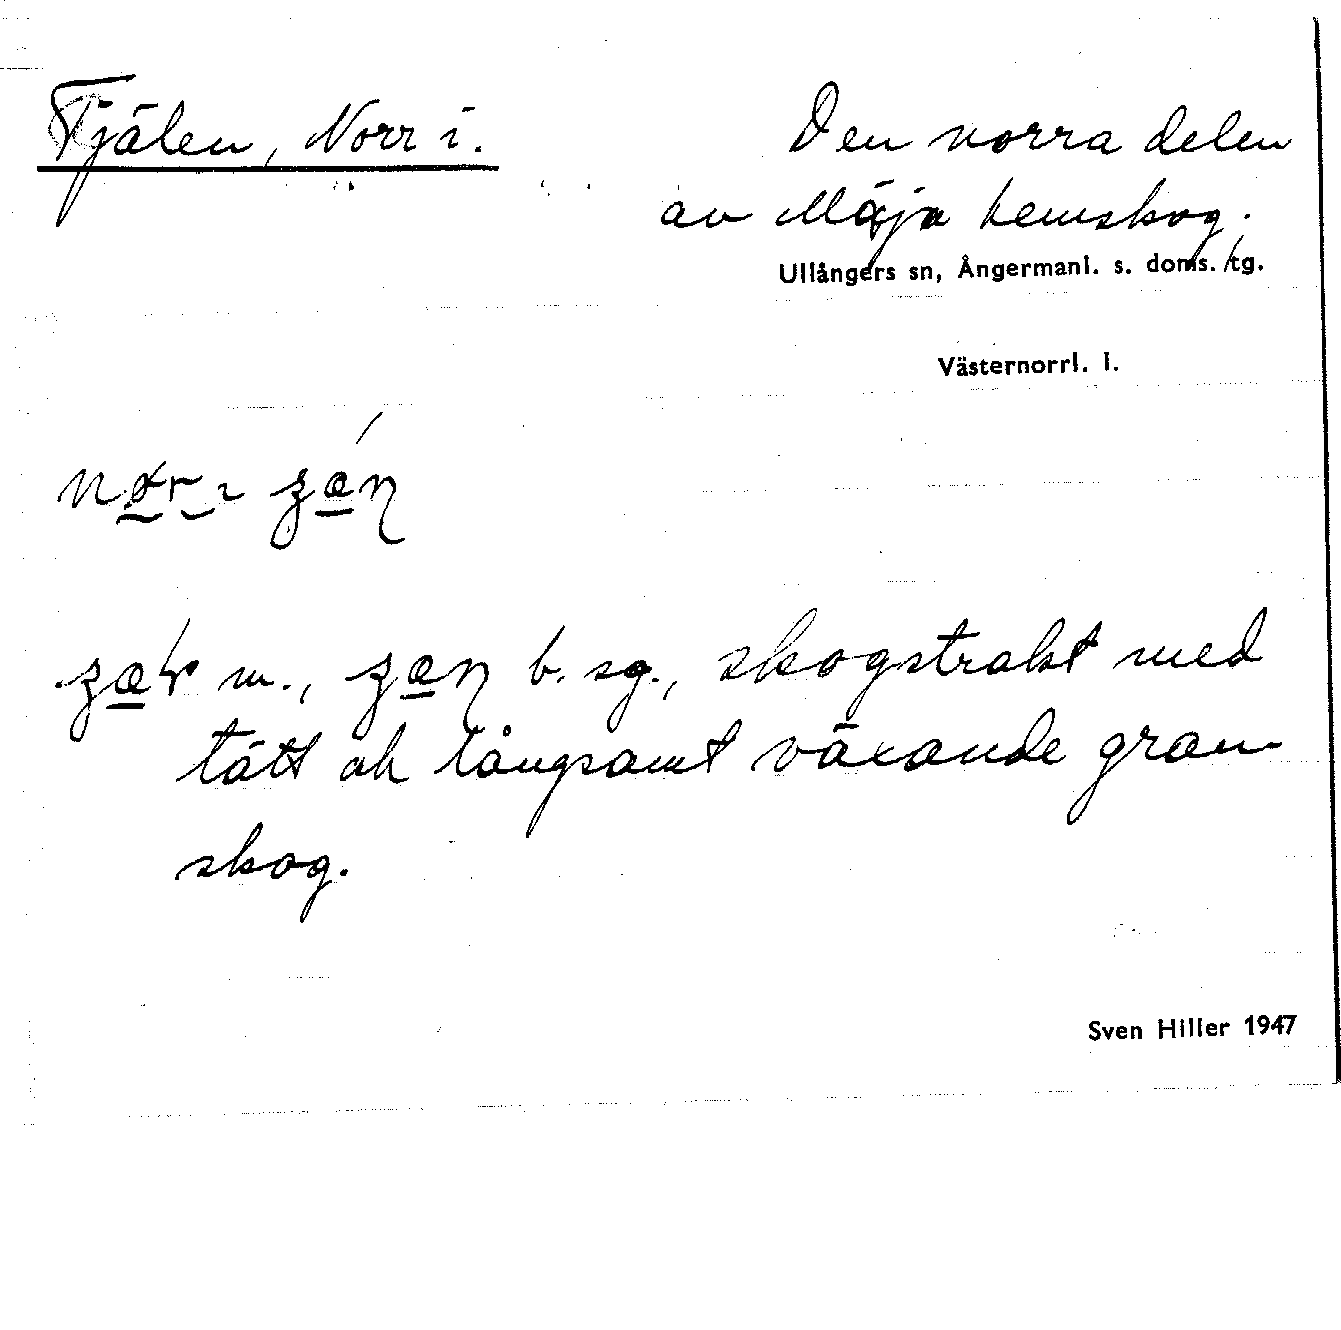 Tjälen, Norr i.
Den norra delen
av Mäja hemskog.
Ullångers sn, Ångermanl. s. doms. tg.
Västernorrl. l.
b. sg., skogstrakt med
tätt och långsamt växande gran-
skog.
Sven Hiller 1947